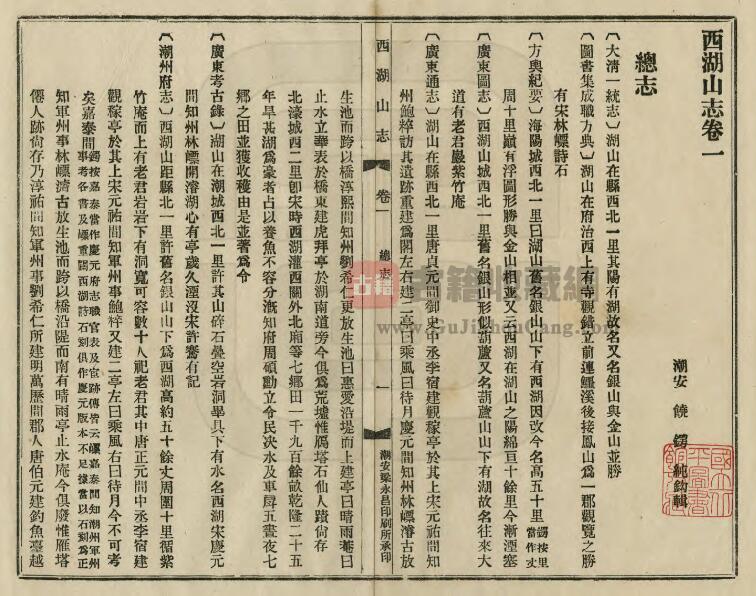 西湖山志卷一
潮安 饒鍔 純鈎輯
總志
〔大清一統志〕湖山在縣西北一里其陽有湖故名又名銀山與金山並勝
〔圖書集成職方典〕湖山在府治西上有寺觀錯立前連鱷溪後接鳳山爲一郡觀覽之勝
有宋林㟽詩石
〔方輿紀要〕海陽城西北一里曰湖山舊名銀山山下有西湖因改今名高五十里鍔按里當作丈
周十里巔有浮圖形勝與金山相並又云西湖在湖山之陽綿亘十餘里今漸湮塞
〔廣東圖志〕西湖山城西北一里舊名銀山形似葫蘆又名葫蘆山山下有湖故名往來大
道有老君巖紫竹庵
〔廣東通志〕湖山在縣西北一里唐貞元間御史中丞李宿建觀稼亭於其上宋元祐間知
州鮑粹訪其遺跡重建爲閣左右建二亭曰乘風曰待月慶元間知州林㟽濬古放
西湖山志 卷一 總志 一 潮安梁永昌印刷所承印
生池而跨以橋淳熙間知州劉希仁更放生池曰惠愛沿堤而上建亭曰晴雨菴曰
止水立華表於橋東建虎拜亭於湖南道旁今俱爲荒墟惟鴈塔石仙人蹟尙存
北濠城西二里卽宋時西湖灌西關外北廂等七鄉田一千九百餘畝乾隆二十五
年旱甚湖爲豪者占以養魚不容分漑知府周碩勳立令民決水及車戽五晝夜七
鄉之田並獲收穫由是並著爲令
〔廣東考古錄〕湖山在潮城西北一里許其山碎石疊空岩洞畢具下有水名西湖宋慶元
間知州林㟽開濬湖心有亭歲久湮沒宋許騫有記
〔潮州府志〕西湖山距縣北一里許舊名銀山山下爲西湖高約五十餘丈周圍十里循紫
竹庵而上有老君岩岩下有洞寬可容數十人祀老君其中唐正元間中丞李宿建
觀稼亭於其上宋元祐間知軍州事鮑粹又建二亭左曰乘風右曰待月今不可考
矣嘉泰間鍔按嘉泰當作慶元府志職官表及官跡傳皆云㟽嘉泰間知潮州軍州事考各書及㟽重闢西湖詩石刻俱作慶元版本不足據當以石刻爲正
知軍州事林㟽濬古放生池而跨以橋沿隄而南有晴雨亭止水庵今俱廢惟雁塔
僊人跡尙存乃淳祐間知軍州事劉希仁所建明萬歷間郡人唐伯元建釣魚臺越
古籍收藏網
www.GuJiShouCang.Com